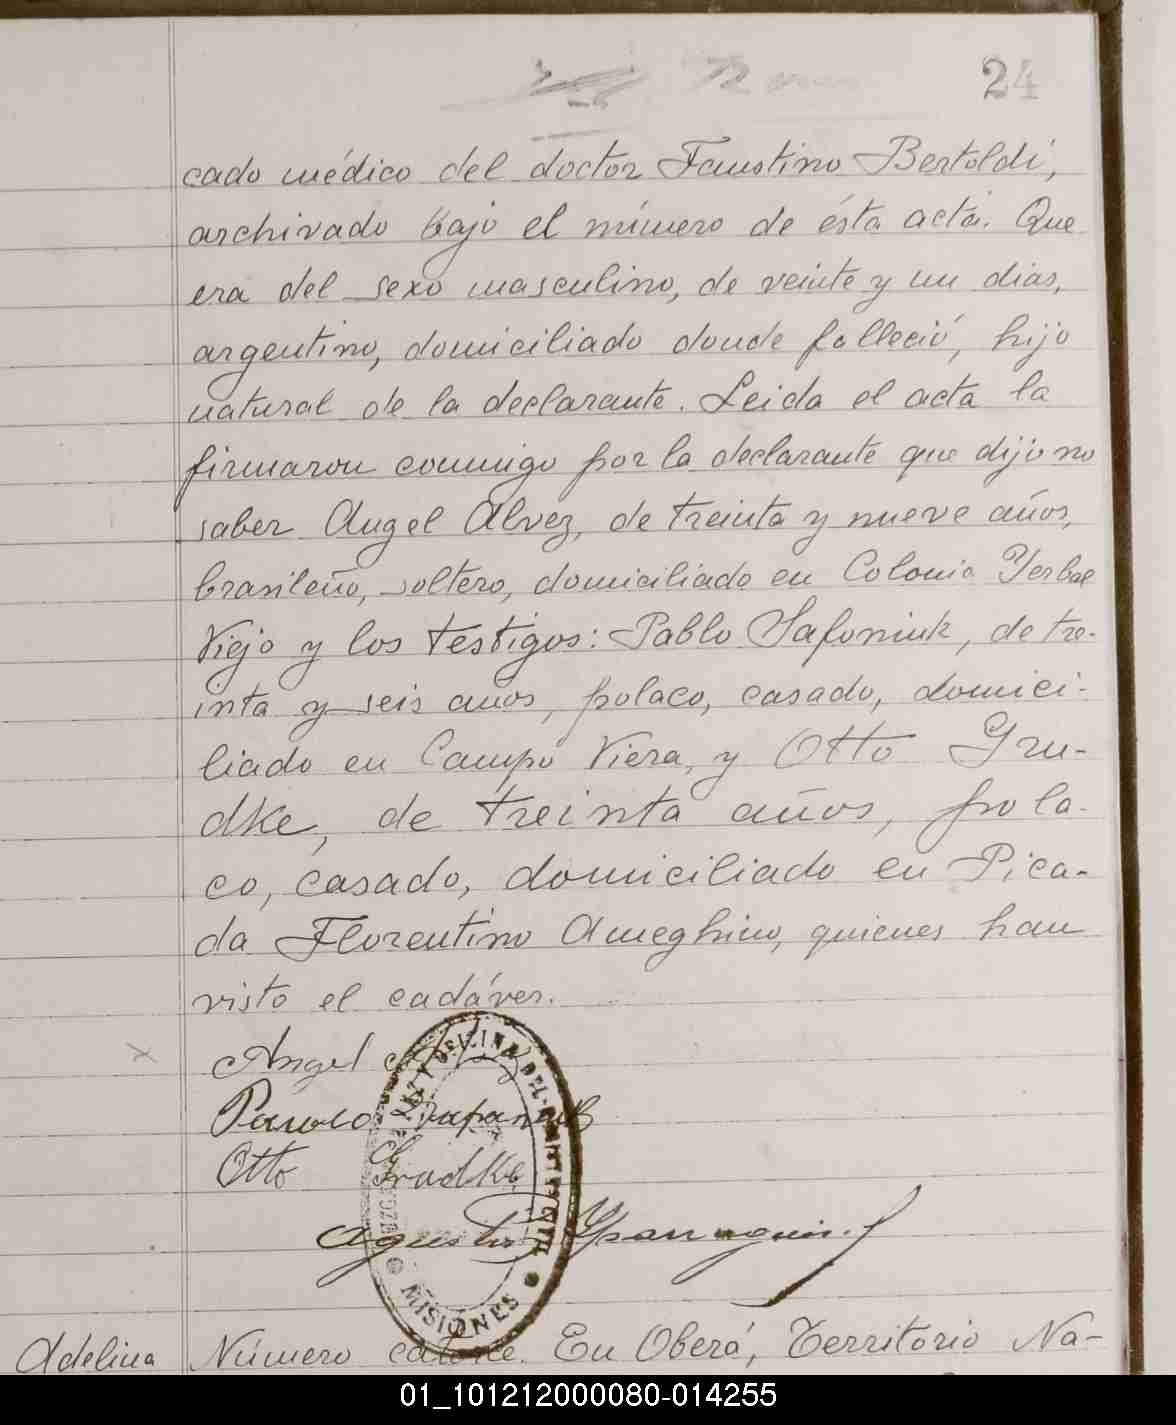 24
cado médico del doctor Faustino Bertoldi,
archivado bajo el número de ésta acta. Que
era del sexo masculino, de veinte y un dias,
argentino, domiciliado donde falleció, hijo
natural de la declarante. Leida el acta la
firmaron conmigo por la declarante que dijo no
saber Angel Alvez, de treinta y nueve años,
brasileño, soltero, domiciliado en Colonia Yerbal
Viejo y los testigos: Pablo Safoniuk, de tre-
inta y seis años, polaco, casado, domici-
liado en Campo Viera, y Otto Gru-
dke, de treinta años, pola-
co, casado, domiciliado en Pica-
da Florentino Ameghino, quienes han
visto el cadáver.
Angel
Otto Grudke
Agustin
MISIONES
Adelina Número catorce. En Oberá, Territorio Na-
01_101212000080-014255